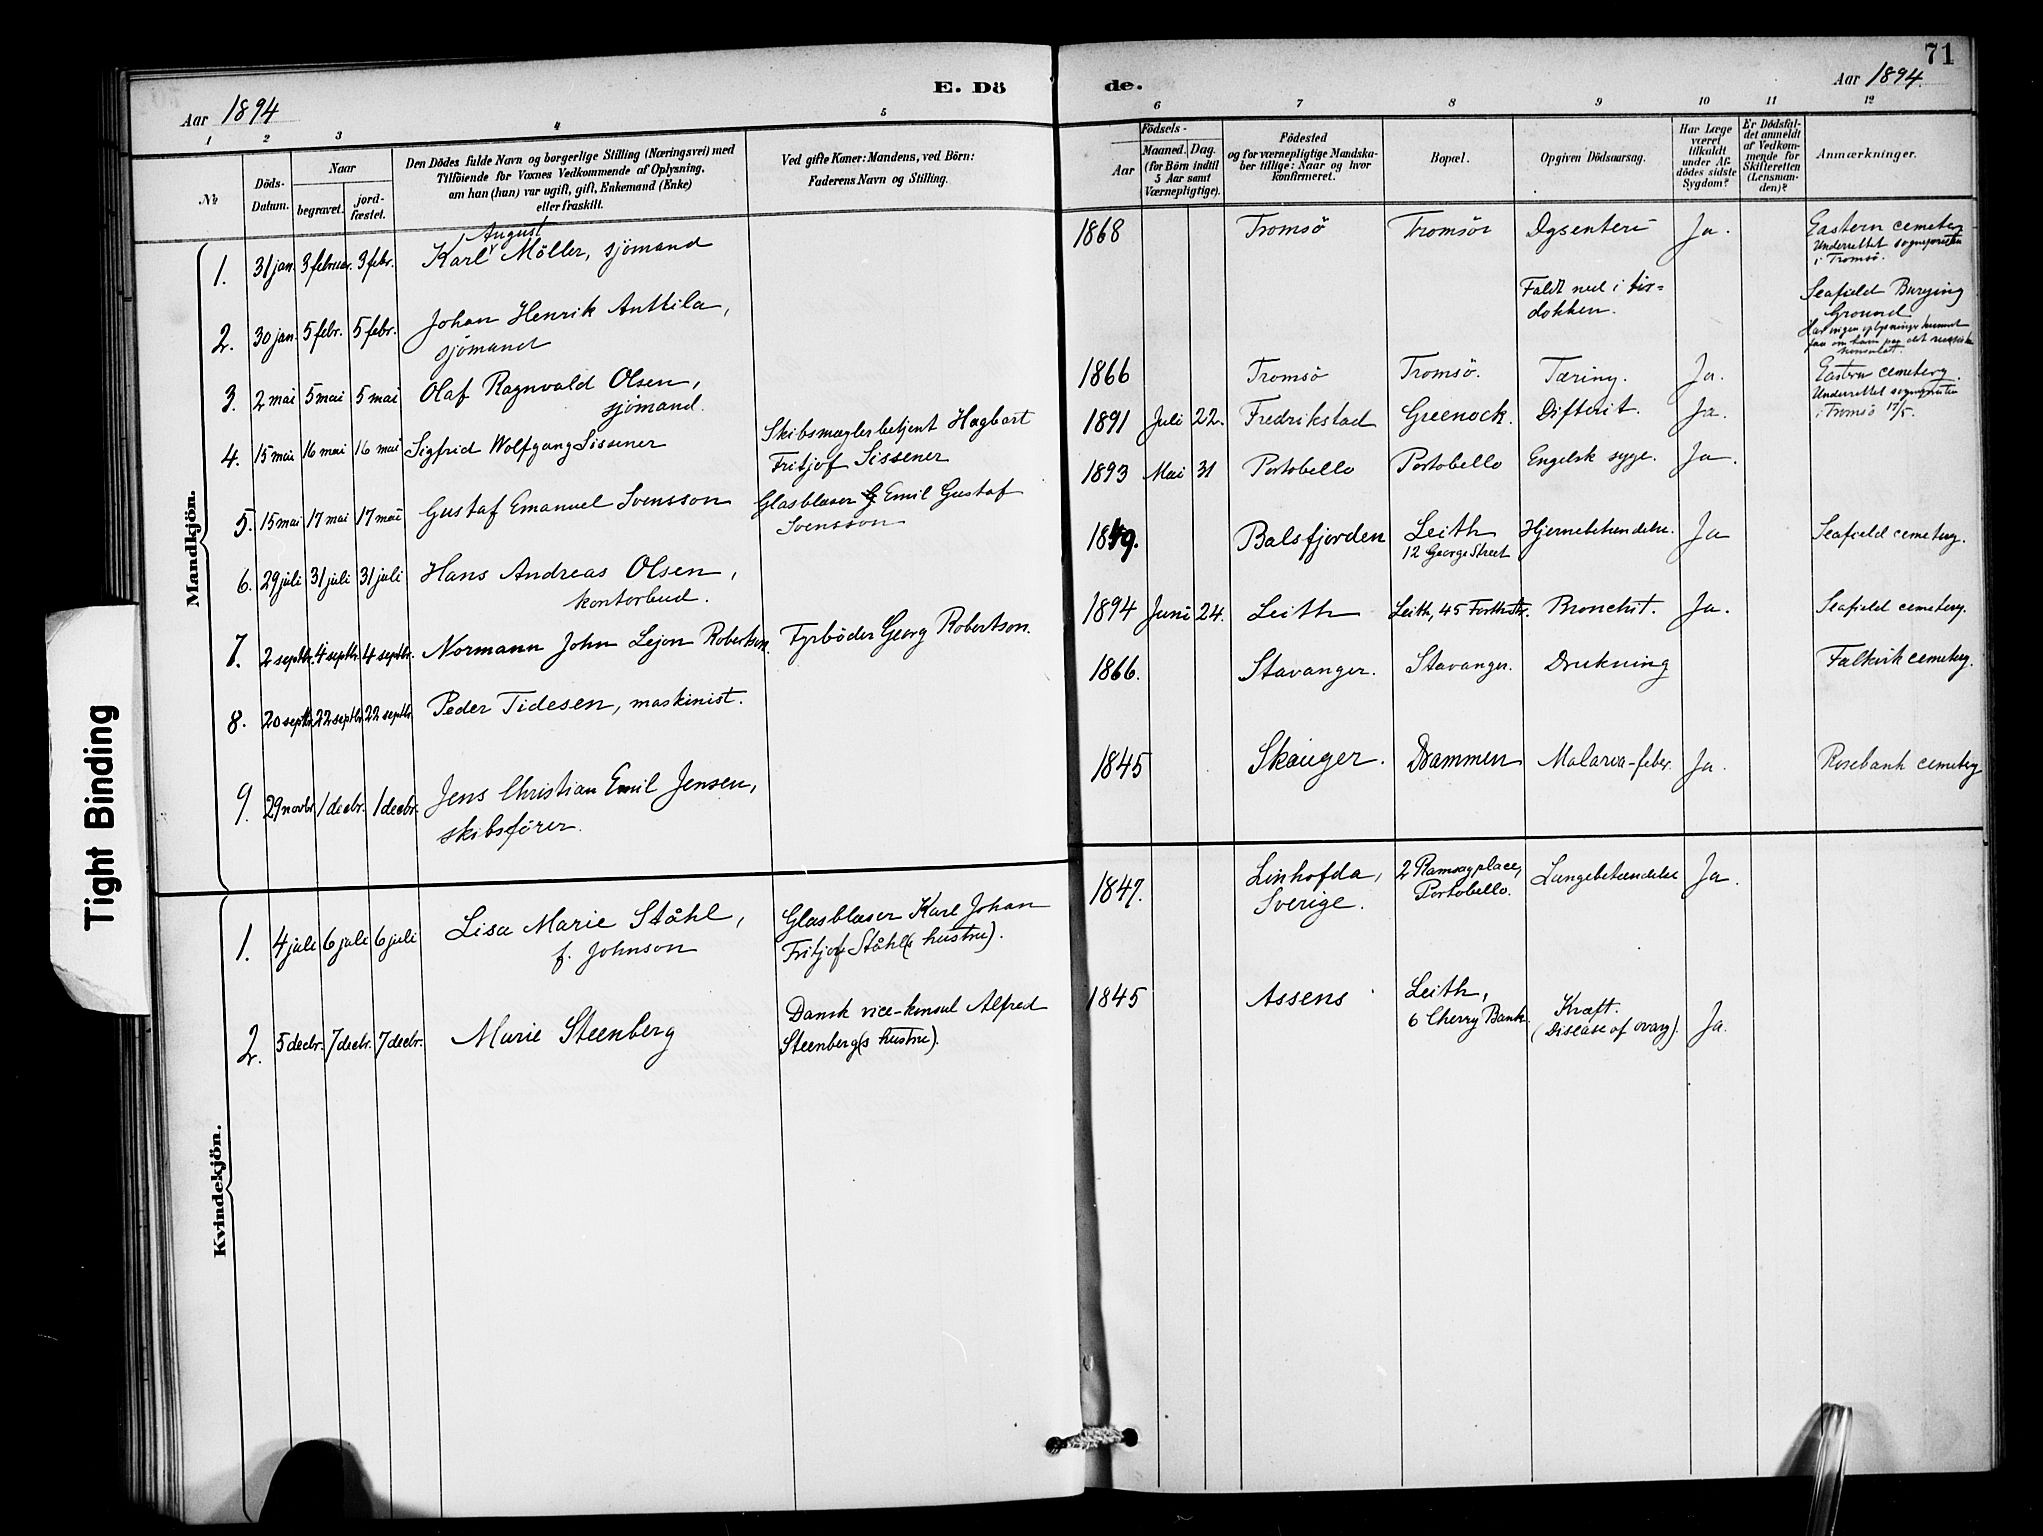 71
Aar 1894
E. Dö
de.
Aar 1894.
1 2 3 4 5 6 7 8 9 10 11 12
No
Döds-
Datum.
Naar
begravet.
jord-
fæstet.
Den Dödes fulde Navn og borgerlige Stilling (Næringsvei) med
Tilföiende for Voxnes Vedkommende af Oplysning,
om han (hun) var ugift, gift, Enkemand (Enke)
eller fraskilt.
Ved gifte Koner: Mandens, ved Börn:
Faderens Navn og Stilling.
Födsels-
Aar
Maaned.
Dag.
(for Börn indtil
5 Aar samt
Værnepligtige).
Födested
og for værnepligtige Mandska-
ber tillige: Naar og hvor
konfirmeret.
Bopæl.
Opgiven Dödsaarsag.
Har Læge
været
tilkaldt
under Af-
dödes sidste
Sygdom?
Er Dödsfal-
det anmeldt
af Vedkom-
mende for
Skifteretten
(Lensman-
den)?
Anmærkninger.
Mandkjön.
1. 31 jan. 3 februar. 3 febr. Karl August Möller, sjömand
1868 Tromsö Tromsö Dysenteri Ja. Eastern cemetery
Underrettet sognepresten
i Tromsö.
2. 30 jan. 5 febr. 5 febr. Johan Henrik Anttila,
sjömand
Faldt ned i tör-
dokken.
Seafield Burying
Ground
Har ingen oplysninger kunnet
faa om ham paa det russiske
konsulat.
3. 2 mai 5 mai 5 mai Olaf Ragnvald Olsen,
sjömand.
1866 Tromsö Tromsö. Tæring. Ja. Eastern cemetery.
Underrettet sognepresten
i Tromsö 17/5.
4. 15 mai 16 mai 16 mai Sigfrid Wolfgang Sissener
Skibsmæglerbetjent Hagbart
Fritjof Sissener
1891 Juli 22. Fredrikstad Greenock. Difterit. Ja.
5. 15 mai 17 mai 17 mai Gustaf Emanuel Svensson
Glasblaser Emil Gustaf
Svensson
1893 Mai 31 Portobello Portobello Engelsk syge. Ja.
6. 29 juli 31 juli 31 juli Hans Andreas Olsen,
kontorbud.
1849. Balsfjorden Leith
12 George Street
Hjernebetændelse. Ja Seafield cemetery.
7. 2 septbr. 4 septbr. 4 septbr. Normann John Lejon Robertson. Fyrböder Georg Robertson.
1894 Juni 24. Leith Leith, 45 Forthstr. Bronchit. Ja. Seafield cemetery.
8. 20 septbr. 22 septbr. 22 septbr. Peder Tidesen, maskinist.
1866. Stavanger. Stavanger. Drukning Falkirk cemetery.
9. 29 novbr. 1 decbr. 1 decbr. Jens Christian Emil Jensen,
skibsförer.
1845 Skauger. Drammen Malaria-feber. Ja. Rosebank cemetery
Kvindekjön.
1. 4 juli 6 juli 6 juli Lisa Marie Ståhl,
f. Johnson
Glasblaser Karl Johan
Fritjof Ståhl(s hustru).
1847. Linhofda,
Sverige.
2 Ramsay place,
Portobello.
Lungebetændelse Ja.
2. 5 decbr. 7 decbr. 7 decbr. Marie Steenberg
Dansk vice-konsul Alfred
Steenberg(s hustru).
1845 Assens Leith,
6 Cherry Bank
Kræft.
(Disease of ovary). Ja.
Tight Binding